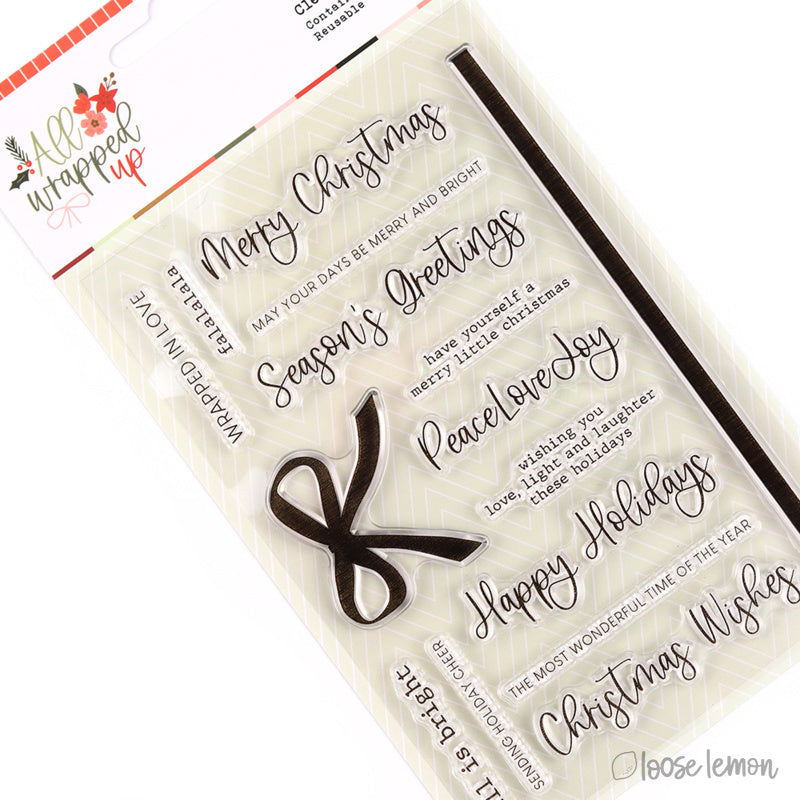 Reusable
All
wrapped
up
Merry Christmas
MAY YOUR DAYS BE MERRY AND BRIGHT
falalalala
WRAPPED IN LOVE
Season's Greetings
have yourself a
merry little christmas
PeaceLoveJoy
wishing you
love, light and laughter
these holidays
Happy Holidays
THE MOST WONDERFUL TIME OF THE YEAR
Christmas Wishes
SENDING HOLIDAY CHEER
is bright
loose lemon